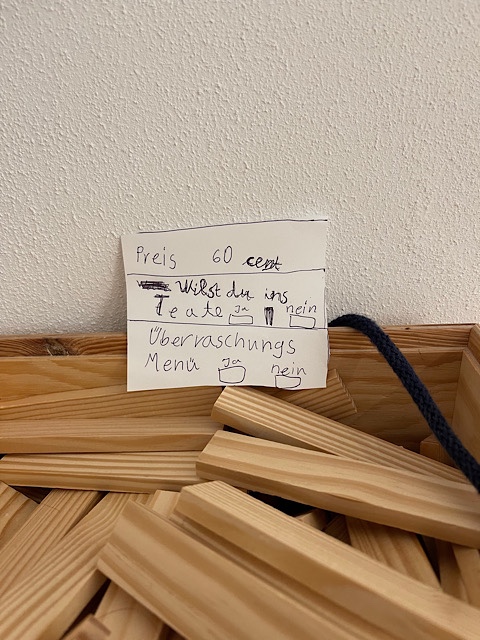 Preis 60 cent
Wilst du ins
Teate ja nein
Überraschungs
Menü ja nein